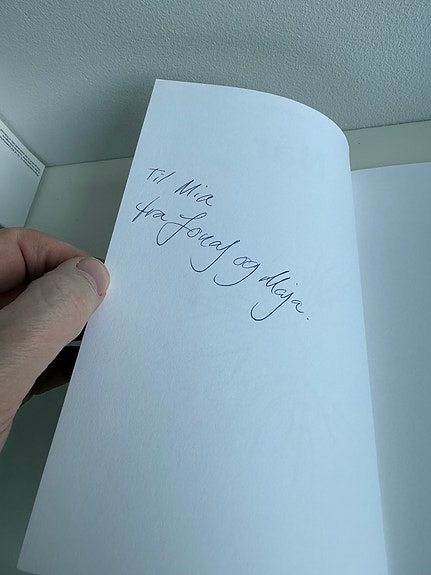 Til Mia
fra Jonas og Maja.